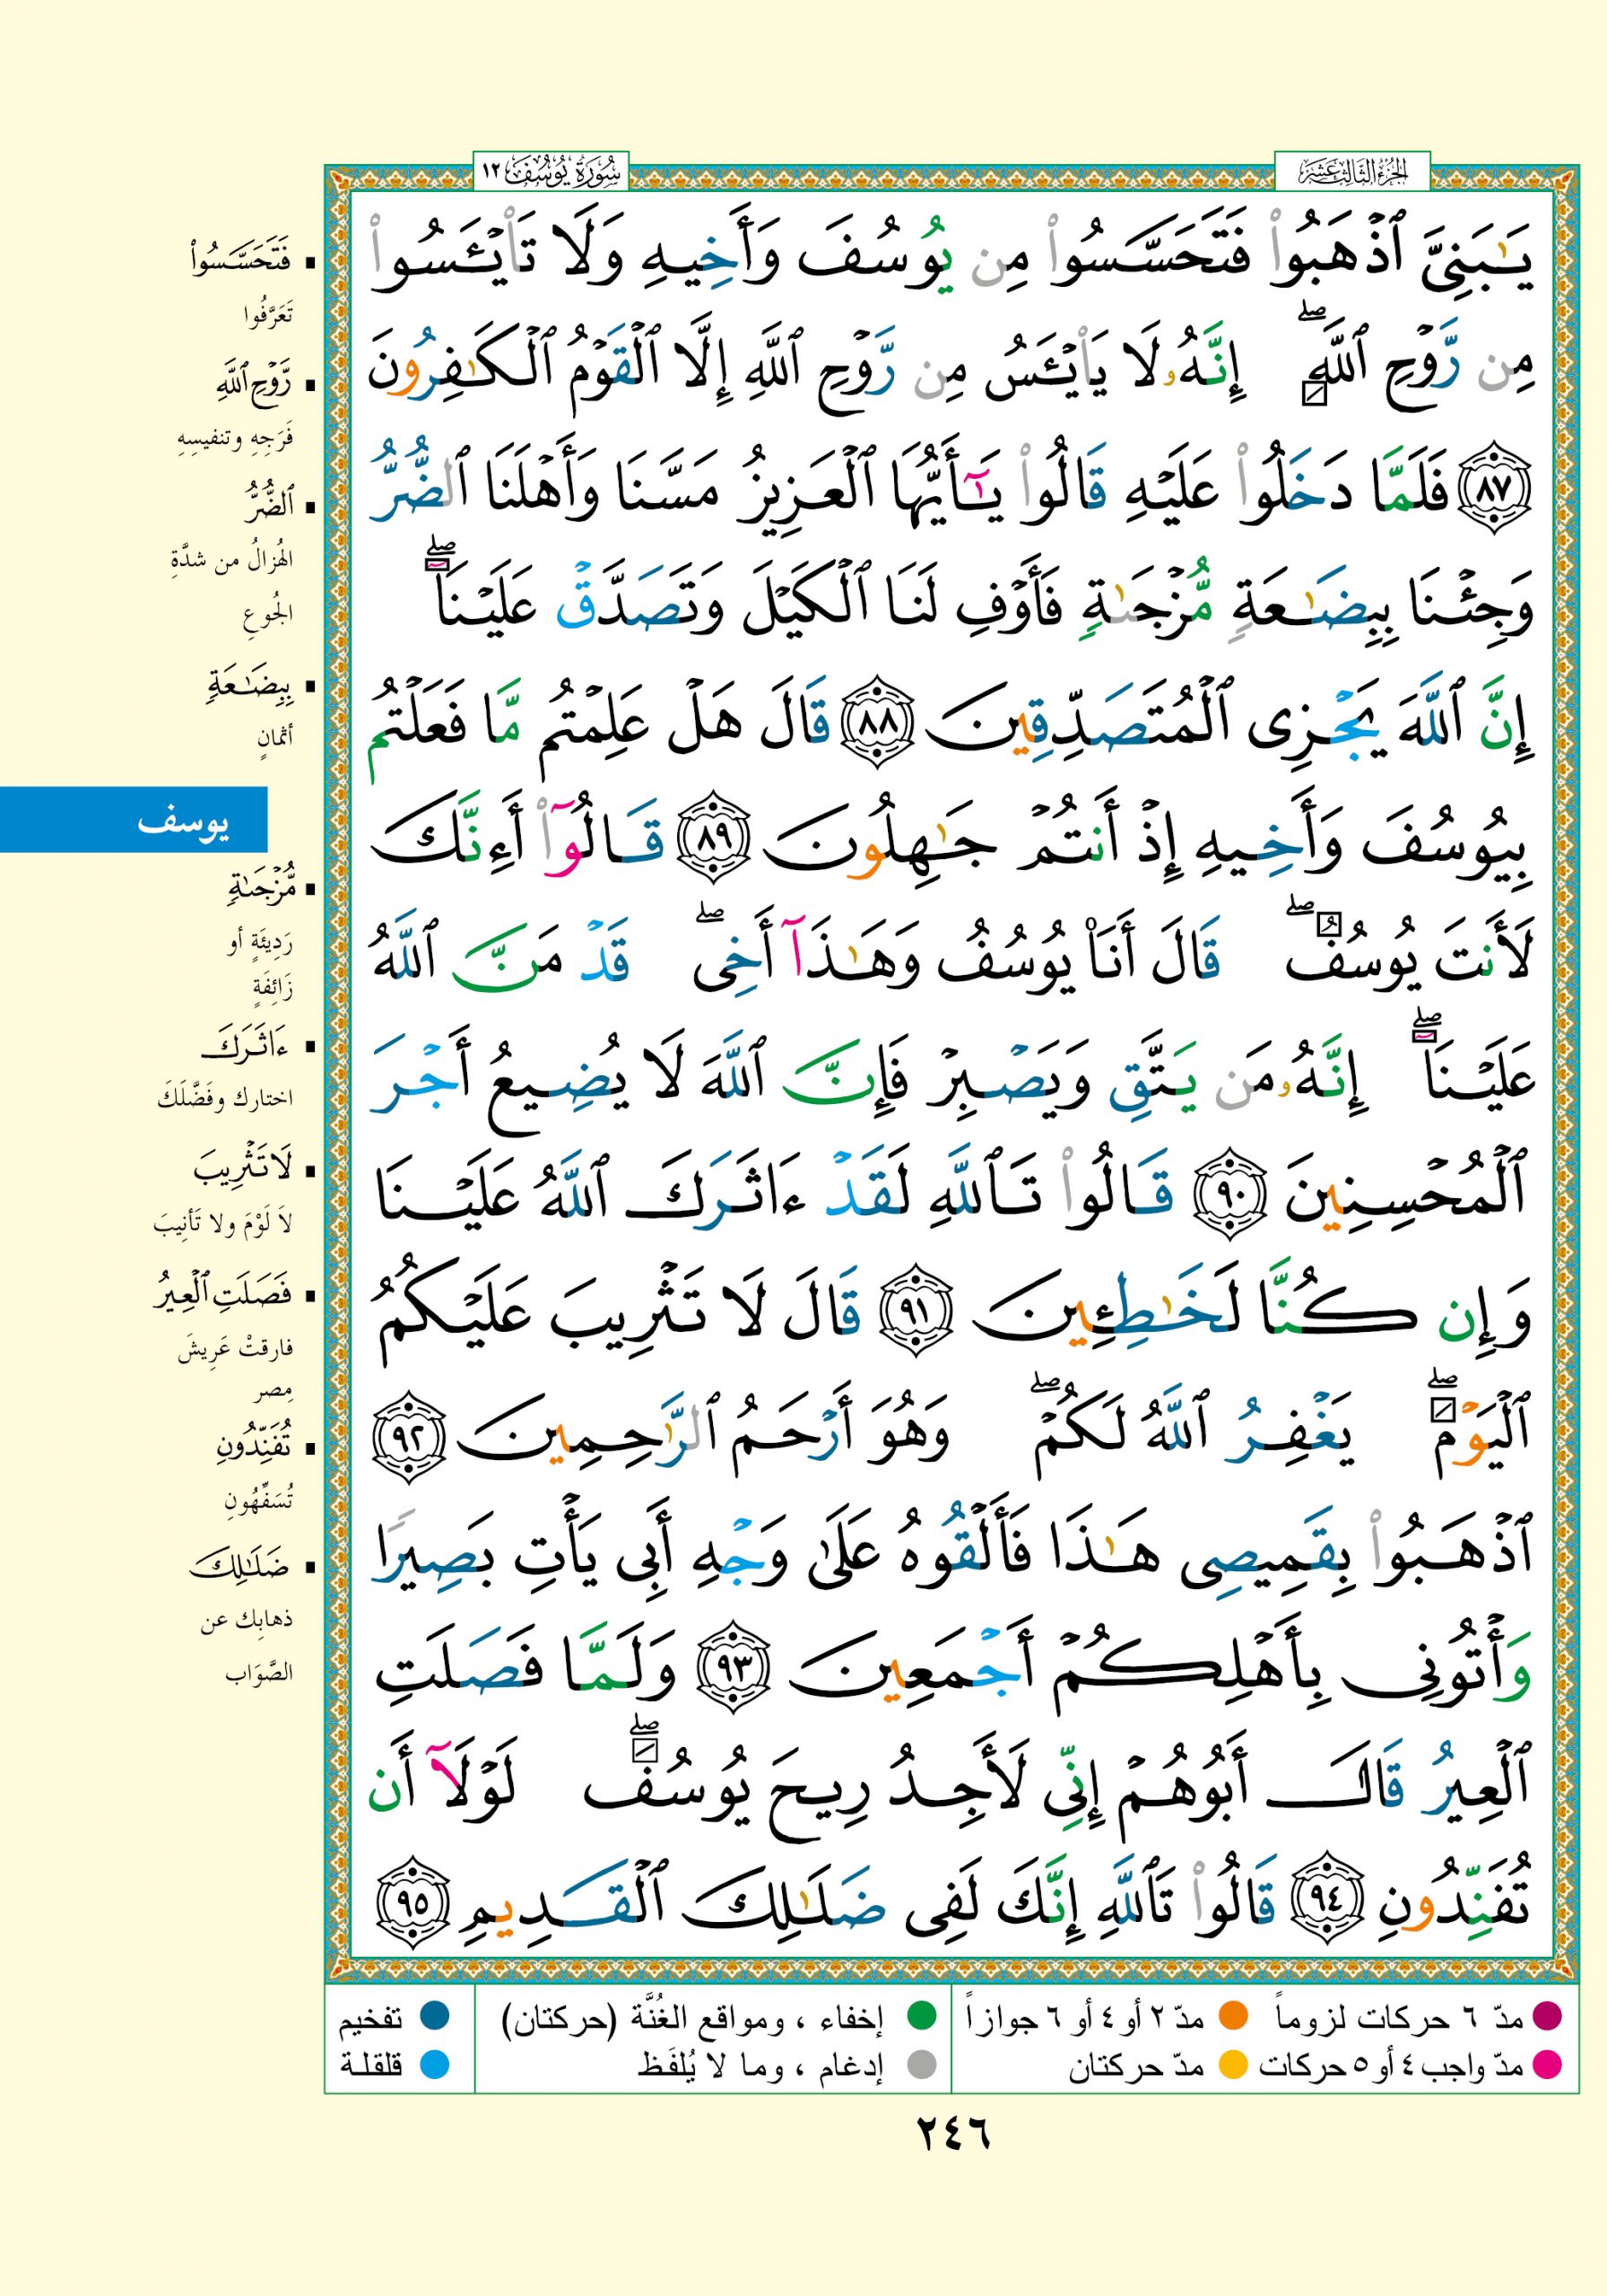 الجزء الثالث عشر
سورة يوسف ١٢
يَـٰبَنِىَّ ٱذْهَبُوا۟ فَتَحَسَّسُوا۟ مِن يُوسُفَ وَأَخِيهِ وَلَا تَا۟يْـَٔسُوا۟
مِن رَّوْحِ ٱللَّهِ ۖ إِنَّهُۥ لَا يَا۟يْـَٔسُ مِن رَّوْحِ ٱللَّهِ إِلَّا ٱلْقَوْمُ ٱلْكَـٰفِرُونَ
٨٧ فَلَمَّا دَخَلُوا۟ عَلَيْهِ قَالُوا۟ يَـٰٓأَيُّهَا ٱلْعَزِيزُ مَسَّنَا وَأَهْلَنَا ٱلضُّرُّ
وَجِئْنَا بِبِضَـٰعَةٍ مُّزْجَىٰةٍ فَأَوْفِ لَنَا ٱلْكَيْلَ وَتَصَدَّقْ عَلَيْنَآ ۖ
إِنَّ ٱللَّهَ يَجْزِى ٱلْمُتَصَدِّقِينَ ٨٨ قَالَ هَلْ عَلِمْتُم مَّا فَعَلْتُم
بِيُوسُفَ وَأَخِيهِ إِذْ أَنتُمْ جَـٰهِلُونَ ٨٩ قَالُوٓا۟ أَءِنَّكَ
لَأَنتَ يُوسُفُ ۖ قَالَ أَنَا۠ يُوسُفُ وَهَـٰذَآ أَخِى ۖ قَدْ مَنَّ ٱللَّهُ
عَلَيْنَآ ۖ إِنَّهُۥ مَن يَتَّقِ وَيَصْبِرْ فَإِنَّ ٱللَّهَ لَا يُضِيعُ أَجْرَ
ٱلْمُحْسِنِينَ ٩٠ قَالُوا۟ تَٱللَّهِ لَقَدْ ءَاثَرَكَ ٱللَّهُ عَلَيْنَا
وَإِن كُنَّا لَخَـٰطِـِٔينَ ٩١ قَالَ لَا تَثْرِيبَ عَلَيْكُمُ
ٱلْيَوْمَ ۖ يَغْفِرُ ٱللَّهُ لَكُمْ ۖ وَهُوَ أَرْحَمُ ٱلرَّٰحِمِينَ ٩٢
ٱذْهَبُوا۟ بِقَمِيصِى هَـٰذَا فَأَلْقُوهُ عَلَىٰ وَجْهِ أَبِى يَأْتِ بَصِيرًا
وَأْتُونِى بِأَهْلِكُمْ أَجْمَعِينَ ٩٣ وَلَمَّا فَصَلَتِ
ٱلْعِيرُ قَالَ أَبُوهُمْ إِنِّى لَأَجِدُ رِيحَ يُوسُفَ ۖ لَوْلَآ أَن
تُفَنِّدُونِ ٩٤ قَالُوا۟ تَٱللَّهِ إِنَّكَ لَفِى ضَلَـٰلِكَ ٱلْقَدِيمِ ٩٥
فَتَحَسَّسُوا۟
تَعَرَّفُوا
رَّوْحِ ٱللَّهِ
فَرَجِهِ وتنفيسِهِ
ٱلضُّرُّ
الهُزالُ من شدَّةِ
الجُوعِ
بِبِضَـٰعَةٍ
أثمانٍ
يوسف
مُّزْجَىٰةٍ
رَدِيئَةٍ أو
زَائِفَةٍ
ءَاثَرَكَ
اختارك وفَضَّلَكَ
لَا تَثْرِيبَ
لاَ لَوْمَ ولا تَأنِيبَ
فَصَلَتِ ٱلْعِيرُ
فارقتْ عَرِيشَ
مِصر
تُفَنِّدُونِ
تُسَفِّهُونِ
ضَلَـٰلِكَ
ذهابِك عن
الصَّوَاب
مدّ ٦ حركات لزوماً
مدّ ٢ أو ٤ أو ٦ جوازاً
مدّ واجب ٤ أو ٥ حركات
مدّ حركتان
إخفاء ، ومواقع الغُنَّة (حركتان)
إدغام ، وما لا يُلفَظ
تفخيم
قلقلة
٢٤٦